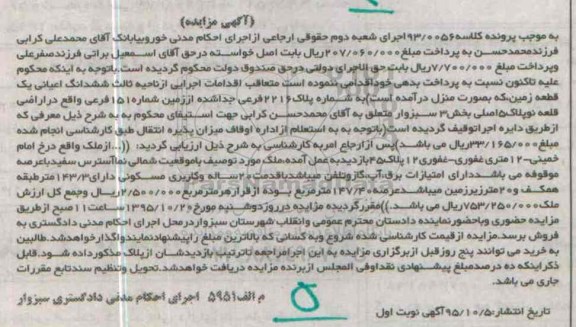 (آگهی مزایده)
به موجب پرونده کلاسه ۹۳/۰۰۵۶ اجرای شعبه دوم حقوقی ارجاعی از اجرای احکام مدنی خوروبیابانک آقای محمدعلی کرابی
فرزندمحمدحسن به پرداخت مبلغ ۲۰۷/۰۶۰/۰۰۰ ریال بابت اصل خواسته درحق آقای اسمعیل براتی فرزندصفرعلی
وپرداخت مبلغ ۷/۷۰۰/۰۰۰ ریال بابت حق الاجرای دولتی درحق صندوق دولت محکوم گردیده است.باتوجه به اینکه محکوم
علیه تاکنون نسبت به پرداخت بدهی خوداقدامی ننموده است متعاقب اقدامات اجرایی ازناحیه ثالث ششدانگ اعیانی یک
قطعه زمین،که بصورت منزل درآمده است)به شماره پلاک ۲۲۱۶ فرعی جداشده اززمین شماره ۱۵۱ فرعی واقع دراراضی
قلعه نوپلاک ۵ اصلی بخش ۳ سبزوار متعلق به آقای محمدحسن کرابی جهت استیفای محکوم به به شرح ذیل معرفی که
ازطریق دایره اجراتوقیف گردیده است(باتوجه به به استعلام ازاداره اوقاف میزان پذیره انتقال طبق کارشناسی انجام شده
مبلغ ۳۳/۱۶۵/۰۰۰ ریال می باشد)پس ازارجاع امربه کارشناسی به شرح ذیل ارزیابی گردید: ((...ازملک واقع درخ امام
خمینی-۱۲متری غفوری-غفوری ۱۲ پلاک ۴۵ بازدیدبه عمل آمده،ملک موردتوصیف باموقعیت شمالی نماآسترس سفیدباعرصه
موقوفه می باشددارای امتیازات برق،آب،گازوتلفن میباشدباقدمت ۲۰ ساله وکاربری مسکونی دارای ۱۴۳/۳ مترطبقه
همکف و ۲۰ مترزیرزمین میباشدعرصه ۱۴۷/۴۰ مترمربع بوده ازقرارهرمترمربع ۲/۵۰۰/۰۰۰ ریال وجمع کل ارزش
ملک ۷۵۳/۲۵۰/۰۰۰ ریال می باشد.))مقررگردیده مزایده درروزدوشنبه مورخ ۱۳۹۵/۱۰/۲۰ ساعت ۱۱ صبح ازطریق
مزایده حضوری وباحضورنماینده دادستان محترم عمومی وانقلاب شهرستان سبزواردرمحل اجرای احکام مدنی دادگستری به
فروش برسد.مزایده ازقیمت کارشناسی شده شروع وبه کسانی که بالاترین مبلغ راپیشنهادنمایندواگذارخواهدشد.طالبین
به خرید می توانند پنج روزقبل ازبرگزاری مزایده به این اجرامراجعه تاترتیب بازدیدشان ازپلاک مذکورداده شود.قابل
ذکراینکه ده درصدمبلغ پیشنهادی نقداوفی المجلس ازبرنده مزایده دریافت خواهدشد.تحویل وتنظیم سندتابع مقررات
جاری می باشد.
م الف ۵۹۵۱ اجرای احکام مدنی دادگستری سبزوار
تاریخ انتشار:۹۵/۱۰/۵ آگهی نوبت اول